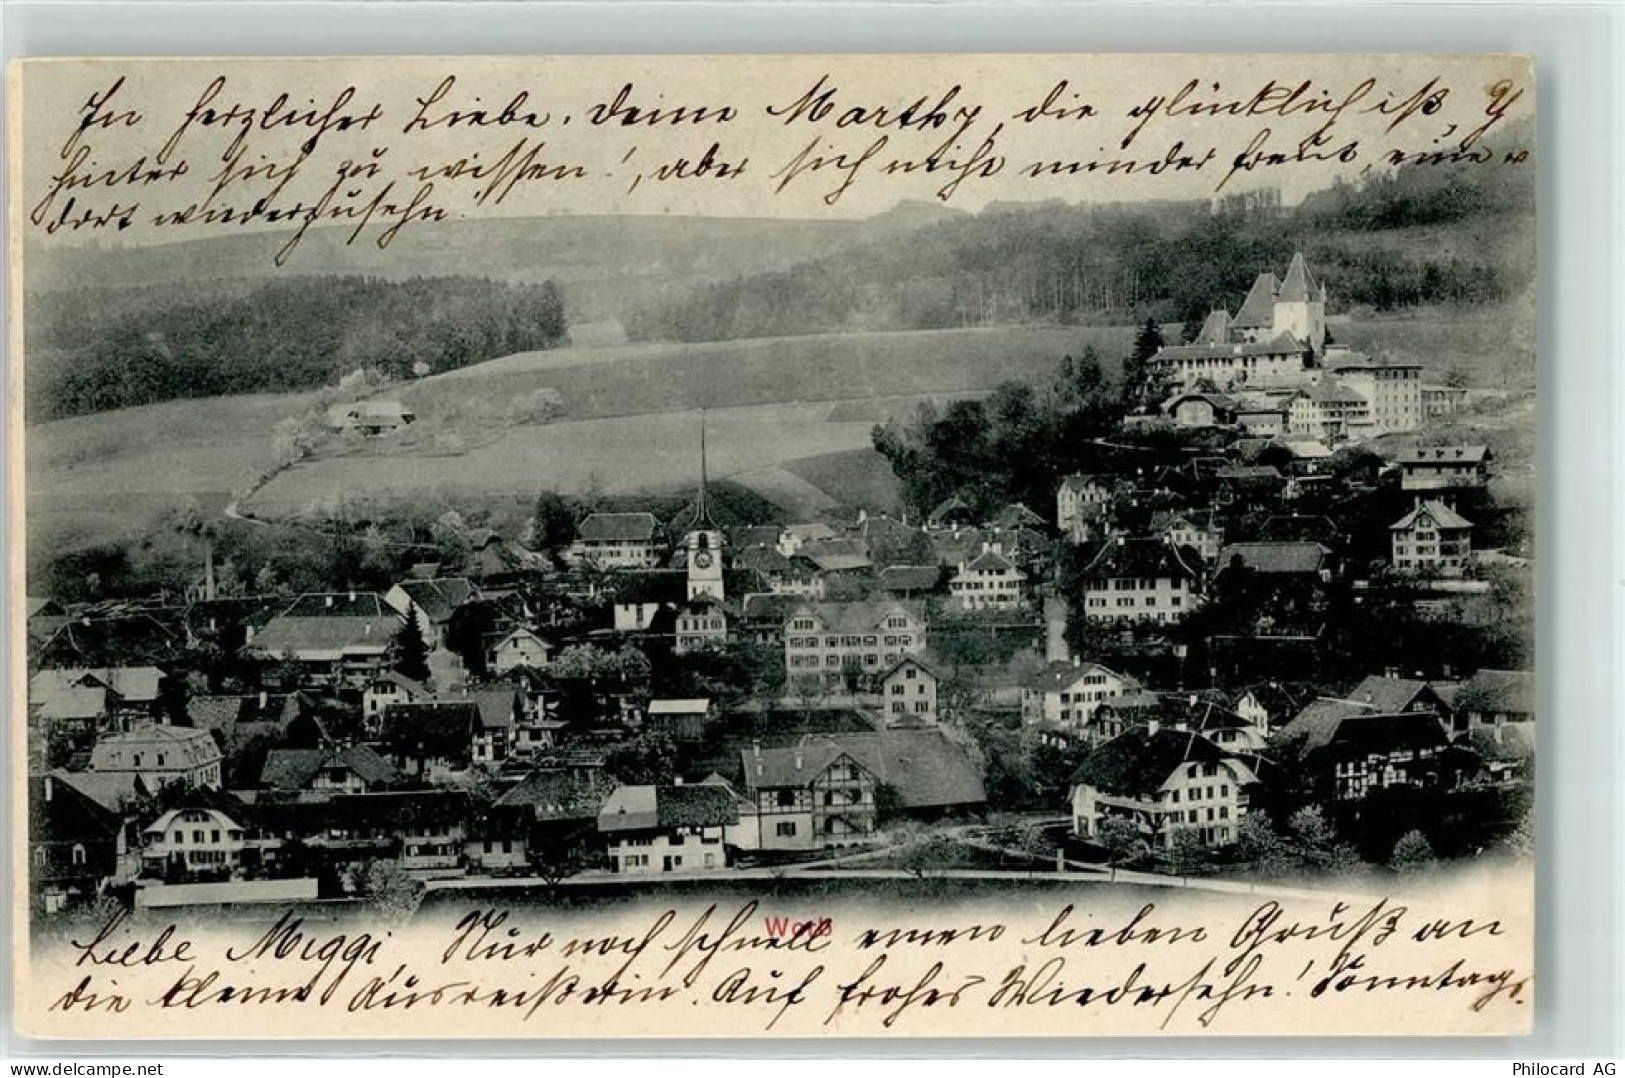 In herzlicher Liebe. Deine Marthy, die glücklich ist, 
hinter sich zu wissen!, aber sich nicht minder freut, eine
dort wiederzusehn.
Worb
Liebe Miggi, Nur noch schnell einen lieben Gruß an
die kleine Ausreißerin. Auf frohes Wiedersehn! Sonntags.
delcampe.net
Philocard AG